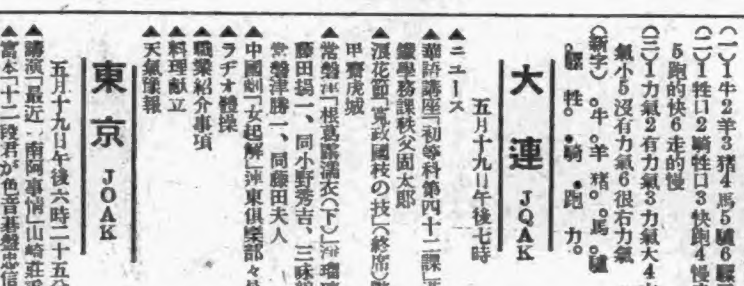 (一)1牛2羊3猪4馬5驢6騾
(二)1牲口2騎牲口3快跑4慢
5跑的快6走的慢
(三)1力氣2有力氣3力氣大4
氣小5沒有力氣6很有力氣
(新字)。牛。羊 猪。。馬。驢
。騾 牲。●騎 ●跑 力。
大連 JQAK
五月十九日午後七時
▲ニュース
▲華語講座「初等科第四十二課」
鐵學務課秩父固太郎
▲浪花節「寛政國枝の技」(終席)
甲齋虎城
▲常磐津「根葛露濡衣(下)」浄瑠璃
藤田揚一、同小野秀吉、三味線
常磐津勝一、同藤田夫人
▲中國劇「女起解」萍東俱樂部々員
▲ラヂオ體操
▲職業紹介事項
▲料理献立
▲天氣豫報
東京 JOAK
五月十九日午後六時二十五分
▲講演「最近ノ南阿事情」山崎莊重
▲富本「十二段君が色音碁盤忠信